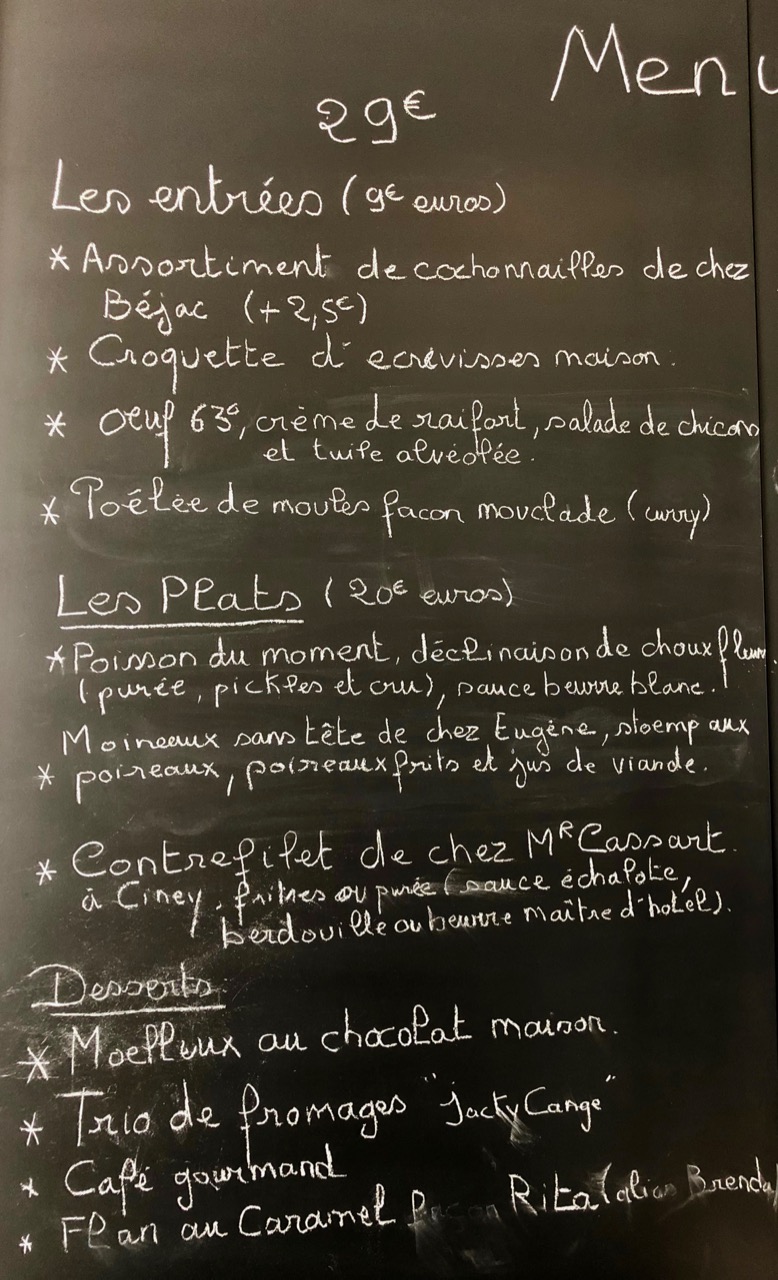 Menu
29€
Les entrées (9€ euros)
* Assortiment de cochonnailles de chez
Béjac (+2,5€)
* Croquette d'ecrévisses maison.
* Oeuf 63°, crème de raifort, salade de chicons
et tuile alvéolée.
* Poêlée de moules façon mouclade (curry)
Les Plats (20€ euros)
* Poisson du moment, déclinaison de choux fleur
(purée, pickles et cru), sauce beurre blanc.
Moineaux sans tête de chez Eugène, stoemp aux
* poireaux, poireaux frits et jus de viande.
* Contrefilet de chez Mʀ Cassart.
à Ciney, frites ou purée (sauce échalote,
berdouille ou beurre maître d'hotel).
Desserts
* Moelleux au chocolat maison.
* Trio de fromages "Jacky Cange"
* Café gourmand
* Flan au Caramel façon Rita (alias Brenda